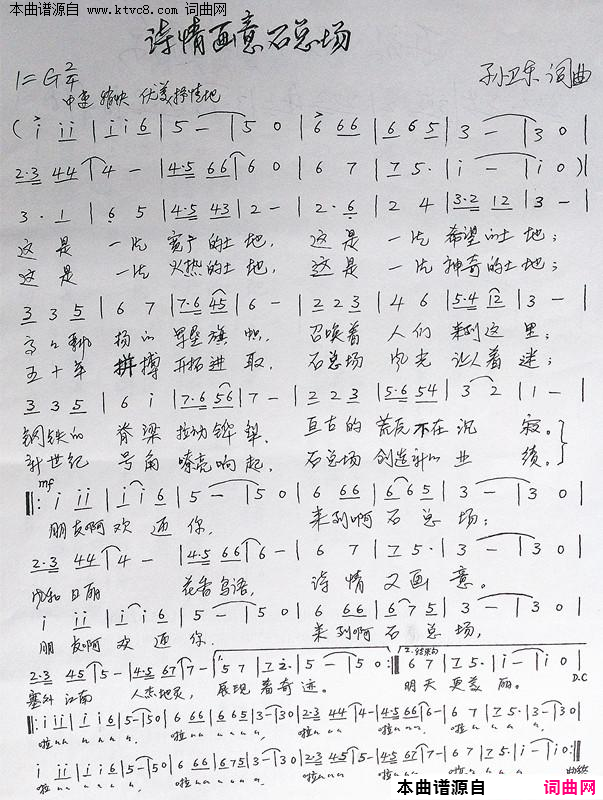 本曲谱源自
www.ktvc8.com 词曲网
诗情画意石总场
1=G 2/4
中速 稍快 优美抒情地
孙卫东 词曲
(i ii | i i 6 | 5 - | 5 0 | 6 66 | 6 6 5 | 3 - | 3 0 |
2·3 44 | 4 - | 4·5 66 | 6 0 | 6 7 | 7 5· | i - | i 0)|
3· 1 | 6 5 | 4·5 43 | 2 - | 2· 6 | 2 4 | 3·2 12 | 3 - |
这是 一片 宽广的土地, 这是 一片 希望的土地;
这是 一片 火热的土地, 这是 一片 神奇的土地;
3 3 5 | 6 7 | 7·6 45 | 6 - | 2 2 3 | 4 6 | 5·4 12 | 3 - |
高高飘 扬的 军垦旗 帜, 召唤着 人们 来到这 里;
五十年 拼搏 开拓进 取, 石总场 风光 让人着 迷;
3 3 5 | 6 i | 7·6 56 | 7 - | 2 2 3 | 5·6 54 | 3 2 | 1 - |
钢铁的 脊梁 拉动铧 犁, 亘古的 荒原不在沉 寂。
新世纪 号角 嘹亮响 起, 石总场 创造新的业 绩。
mf
‖: i ii | i i 6 | 5 - | 5 0 | 6 66 | 6 6 5 | 3 - | 3 0 |
朋友啊 欢 迎 你, 来到啊 石 总 场;
2·3 44 | 4 - | 4·5 66 | 6 - | 6 7 | 7 5· | 3 - | 3 0 |
日丽 花香鸟语, 诗情 又画 意。
i ii | i i 6 | 5 - | 5 0 | 6 66 | 6 7 5 | 3 - | 3 0 |
朋友啊 欢 迎 你, 来到啊 石 总 场,
2·3 45 | 5 - | 4·5 67 | 7 - | 1. 5 7 | 7 2· | 5 - | 5 0 :‖ 2. 结束句 6 7 | 7 5· | i - | i 0 |
塞外 江南 人杰地灵, 展现 着奇 迹。 明天 更美 丽。 D.C
‖: i ii | i i 6 | 5 - | 5 0 | 6 66 | 6 6 5 | 3 - | 3 0 | 2·3 44 | 4 - | 4·5 66 | 6 - | 6 7 | 7 5· | 3 - | 3 0 |
啦 啦 啦 啦 啦
i ii | i i 6 | 5 - | 5 0 | 6 66 | 6 7 5 | 3 - | 3 0 | 2·3 45 | 5 - | 4·5 67 | 7 - | 6 7 | 7 5· | i - | i 0 :‖
啦 啦 啦 啦 啦
本曲谱源自 词曲网